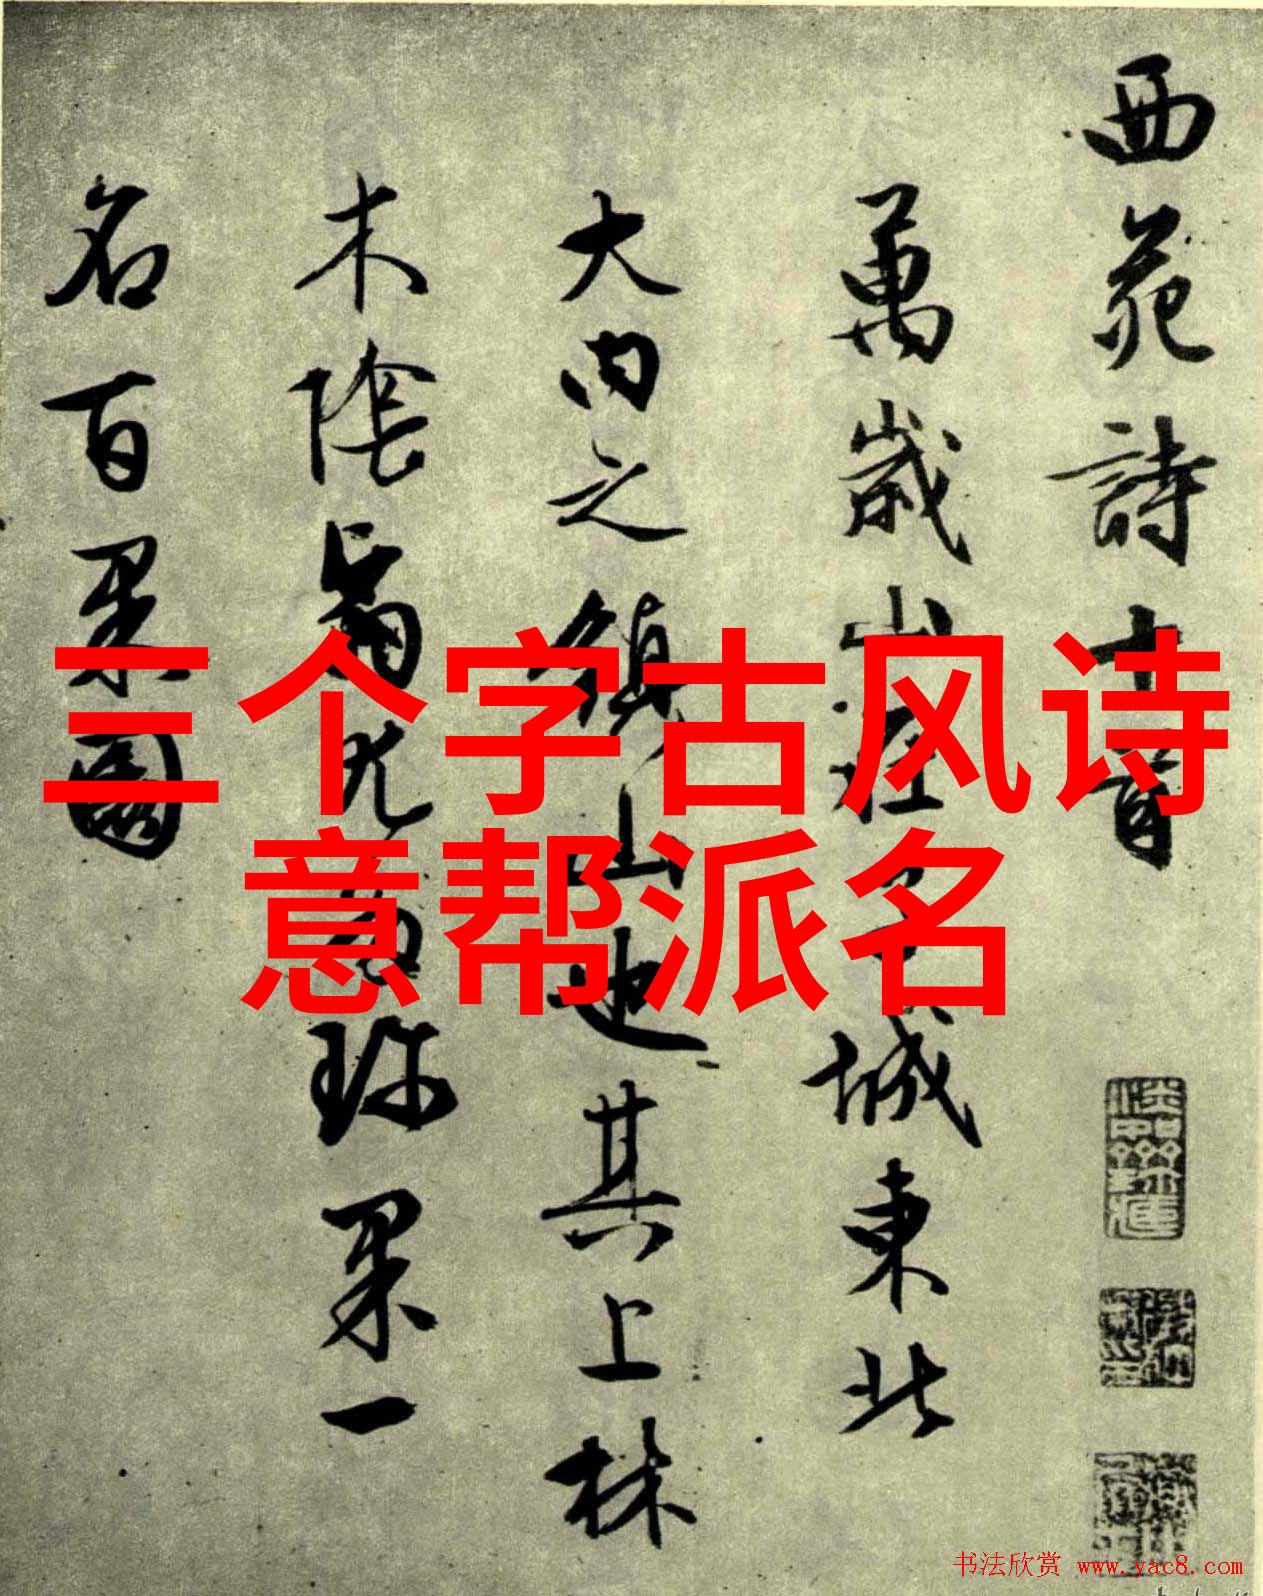 三个字古风诗
意帮派名
西苑詩十首
萬歲山在子城東北
大内之鎮山也其上林
木陰翳尤多珍果一
名百果園
书法欣赏 www.yac8.com